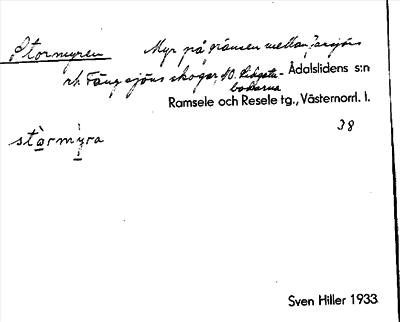 Stormyren Myr på gränsen mellan
o. Fängsjöns skogar, NO. Ådalslidens s:n
Ramsele och Resele tg., Västernorrl. l.
38
stòrmỳra
Sven Hiller 1933